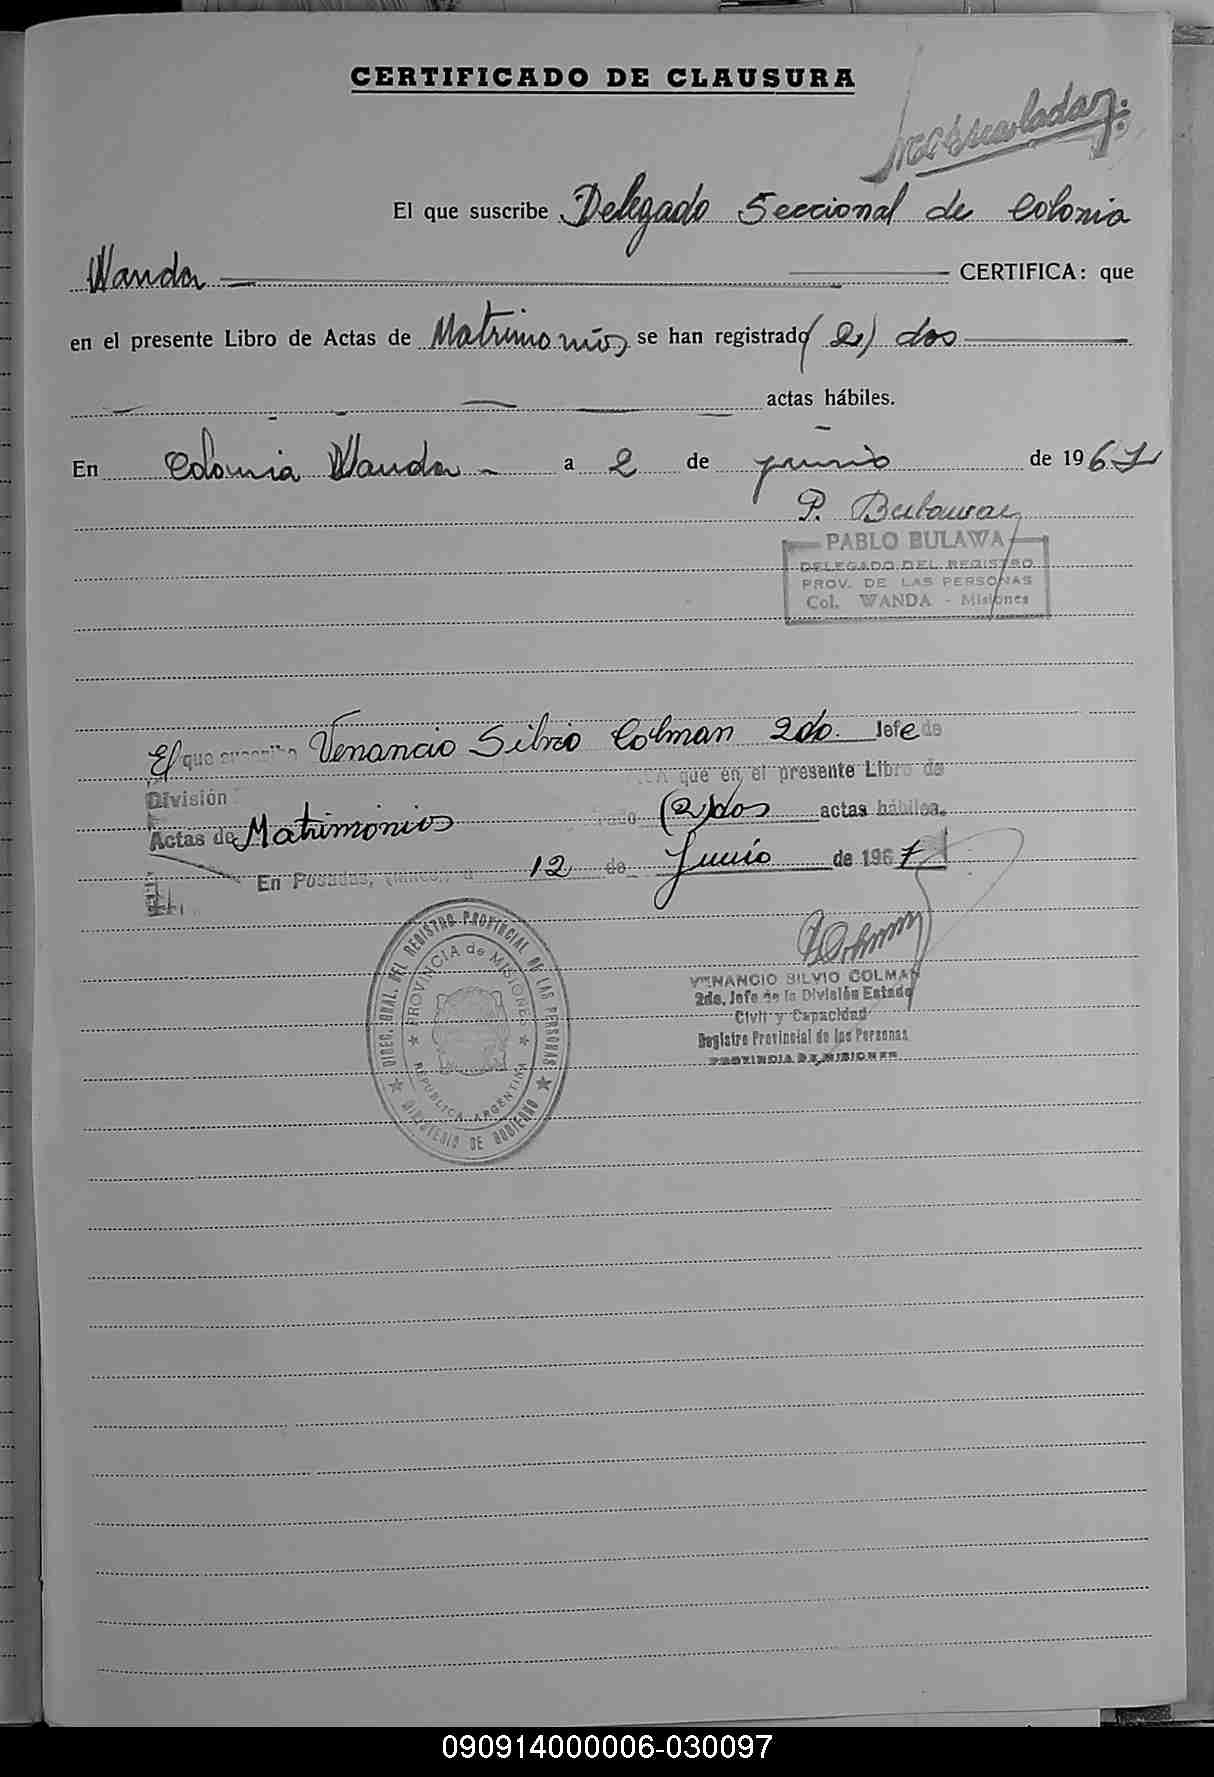 CERTIFICADO DE CLAUSURA
El que suscribe Delegado Seccional de Colonia
Wanda CERTIFICA: que
en el presente Libro de Actas de Matrimonios se han registrado (2) dos
actas hábiles.
En Colonia Wanda - a 2 de junio de 1967
P. Bulawa
PABLO BULAWA
DELEGADO DEL REGISTRO
PROV. DE LAS PERSONAS
Col. WANDA - Misiones
El que suscribe Venancio Silvio Colman 2do. Jefe de
División que en el presente Libro de
Actas de Matrimonios (2) dos actas hábiles.
En Posadas, a 12 de Junio de 1967
VENANCIO SILVIO COLMAN
2do. Jefe de la División Estado
Civil y Capacidad
Registro Provincial de las Personas
PROVINCIA DE MISIONES
DIREC. GRAL. DEL REGISTRO PROVINCIAL DE LAS PERSONAS
MINISTERIO DE GOBIERNO
PROVINCIA de MISIONES
REPUBLICA ARGENTINA
090914000006-030097